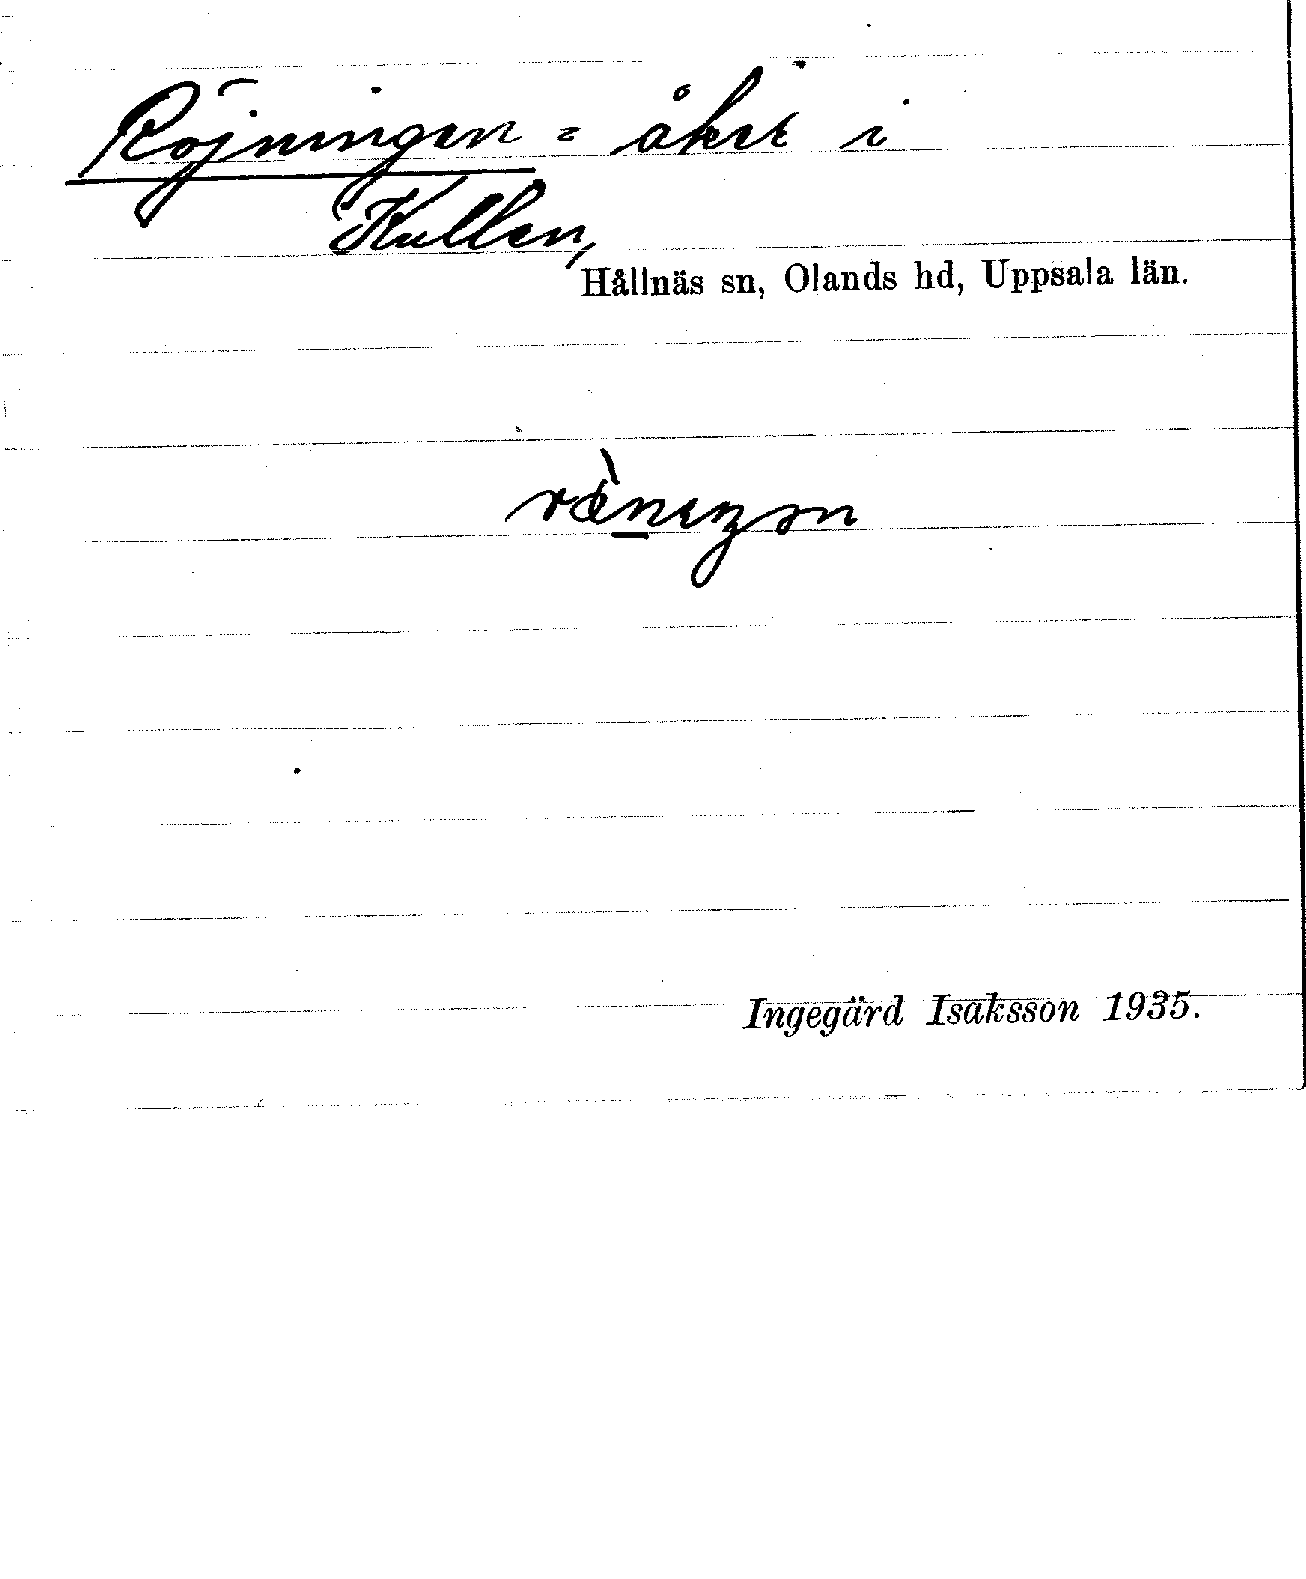 Röjningen = åker i
Kullen,
Hållnäs sn, Olands hd, Uppsala län.
Ingegärd Isaksson 1935.